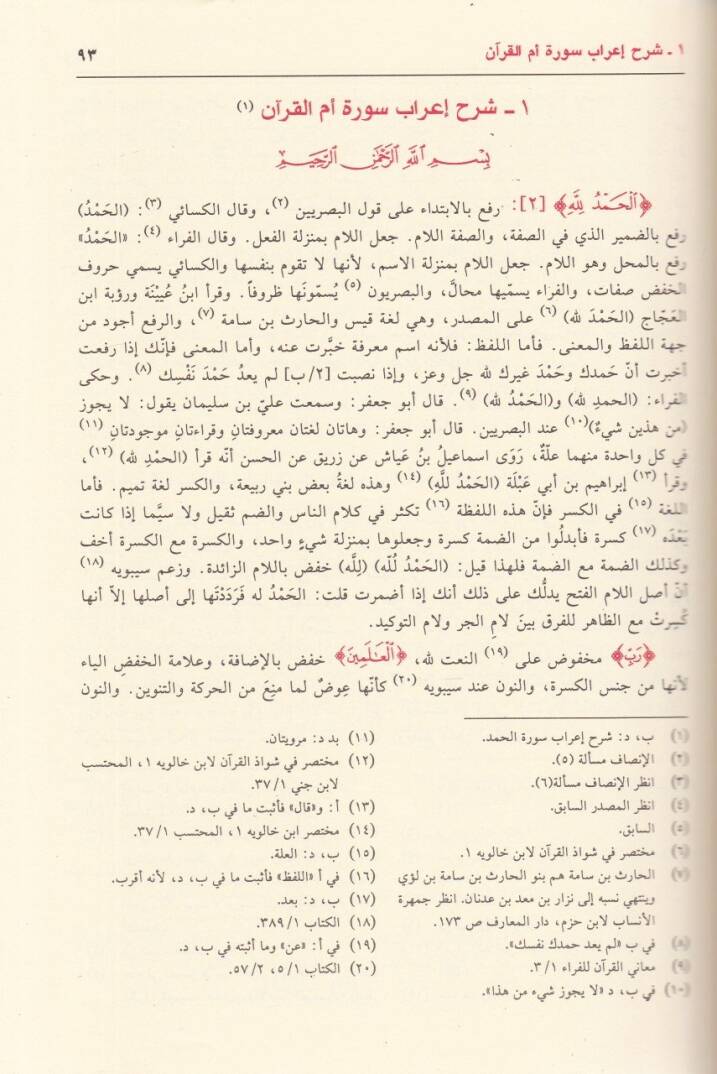 ١ ـ شرح إعراب سورة أم القرآن ٩٣
١ ـ شرح إعراب سورة أم القرآن (١)
بِسْمِ اللَّهِ الرَّحْمَٰنِ الرَّحِيمِ
﴿اَلْحَمْدُ لِلَّهِ﴾ [٢]: رفع بالابتداء على قول البصريين (٢)، وقال الكسائي (٣): (الحَمْدُ)
رفع بالضمير الذي في الصفة، والصفة اللام. جعل اللام بمنزلة الفعل. وقال الفراء (٤): «الحَمْدُ»
رفع بالمحل وهو اللام. جعل اللام بمنزلة الاسم، لأنها لا تقوم بنفسها والكسائي يسمي حروف
الخفض صفات، والفراء يسمّيها محالَّ، والبصريون (٥) يُسمّونَها ظروفاً. وقرأ ابنُ عُيَيْنَة ورؤبة ابن
العَجّاج (الحَمْدَ لله) (٦) على المصدر، وهي لغة قيس والحارث بن سامة (٧)، والرفع أجود من
جهة اللفظ والمعنى. فأما اللفظ: فلأنه اسم معرفة خبَّرت عنه، وأما المعنى فإنّك إذا رفعت
أخبرت أنّ حَمدك وحَمْدَ غيرك لله جل وعز، وإذا نصبت [٢/ب] لم يعدُ حَمْدَ نَفْسِك (٨). وحكى
الفراء: (الحمدِ لله) و(الحَمْدُ لله) (٩). قال أبو جعفر: وسمعت عليّ بن سليمان يقول: لا يجوز
(من هذين شيءٌ)(١٠) عند البصريين. قال أبو جعفر: وهاتان لغتان معروفتانِ وقراءتانِ موجودتانِ (١١)
في كل واحدة منهما علّةٌ، رَوَى اسماعيلُ بنُ عَياش عن زريق عن الحسن أنّه قرأ (الحمْدِ لله) (١٢)،
وقرأ (١٣) إبراهيم بن أبي عَبْلَة (الحَمْدُ للُّهِ) (١٤) وهذه لغةُ بعض بني ربيعة، والكسر لغة تميم. فأما
اللغة (١٥) في الكسر فإنّ هذه اللفظة (١٦) تكثر في كلام الناس والضم ثقيل ولا سيَّما إذا كانت
بَعْدَه (١٧) كسرة فأبدلُوا من الضمة كسرة وجعلوها بمنزلة شيءٍ واحد، والكسرة مع الكسرة أخف
وكذلك الضمة مع الضمة فلهذا قيل: (الحَمْدُ لُلّه) (لِلَّه) خفض باللام الزائدة. وزعم سيبويه (١٨)
أنّ أصل اللام الفتح يدلُّك على ذلك أنك إذا أضمرت قلت: الحَمْدُ له فَرَدَدْتَها إلى أصلها إلاّ أنها
كُسِرتْ مع الظاهر للفرق بينَ لامِ الجر ولام التوكيد.
﴿رَبِّ﴾ مخفوض على (١٩) النعت لله، ﴿اَلْعَالَمِينَ﴾ خفض بالإضافة، وعلامة الخفضِ الياء
لأنها من جنس الكسرة، والنون عند سيبويه (٢٠) كأنّها عِوضٌ لما منِعَ من الحركة والتنوين. والنون
(١) ب، د: شرح إعراب سورة الحمد.
(٢) الإنصاف مسألة (٥).
(٣) انظر الإنصاف مسألة(٦).
(٤) انظر المصدر السابق.
(٥) السابق.
(٦) مختصر في شواذ القرآن لابن خالويه ١.
(٧) الحارث بن سامة هم بنو الحارث بن سامة بن لؤي
وينتهي نسبه إلى نزار بن معد بن عدنان. انظر جمهرة
الأنساب لابن حزم، دار المعارف ص ١٧٣.
(٨) في ب «لم يعد حمدك نفسك».
(٩) معاني القرآن للفراء ٣/١.
(١٠) في ب، د «لا يجوز شيء من هذا».
(١١) بد د: مرويتان.
(١٢) مختصر في شواذ القرآن لابن خالويه ١، المحتسب
لابن جني ٣٧/١.
(١٣) أ: و«قال» فأثبت ما في ب، د.
(١٤) مختصر ابن خالويه ١، المحتسب ٣٧/١.
(١٥) ب، د: العلة.
(١٦) في أ «اللفظ» فأثبت ما في ب، د، لأنه أقرب.
(١٧) ب، د: بعد.
(١٨) الكتاب ٣٨٩/١.
(١٩) في أ: «عن» وما أثبته في ب، د.
(٢٠) الكتاب ٥/١، ٥٧/٢.